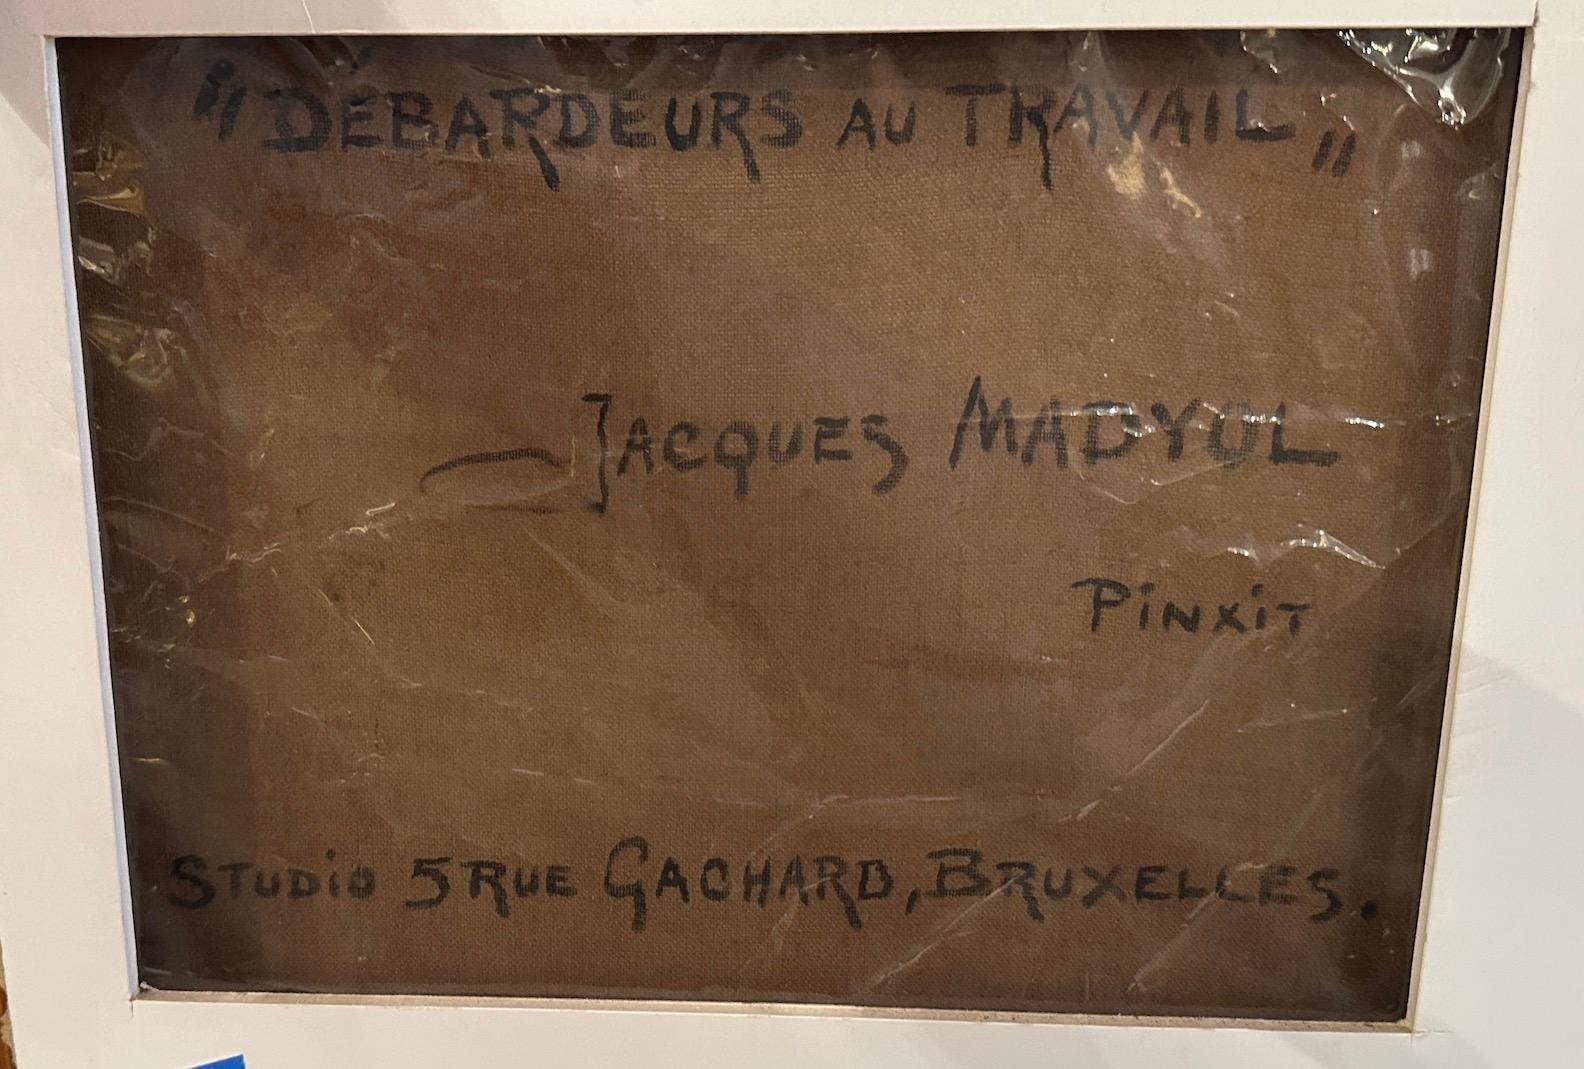 "DÉBARDEURS AU TRAVAIL„
JACQUES MADYOL
PiNXiT
STUDiO 5 RUE GACHARD, BRUXELLES.